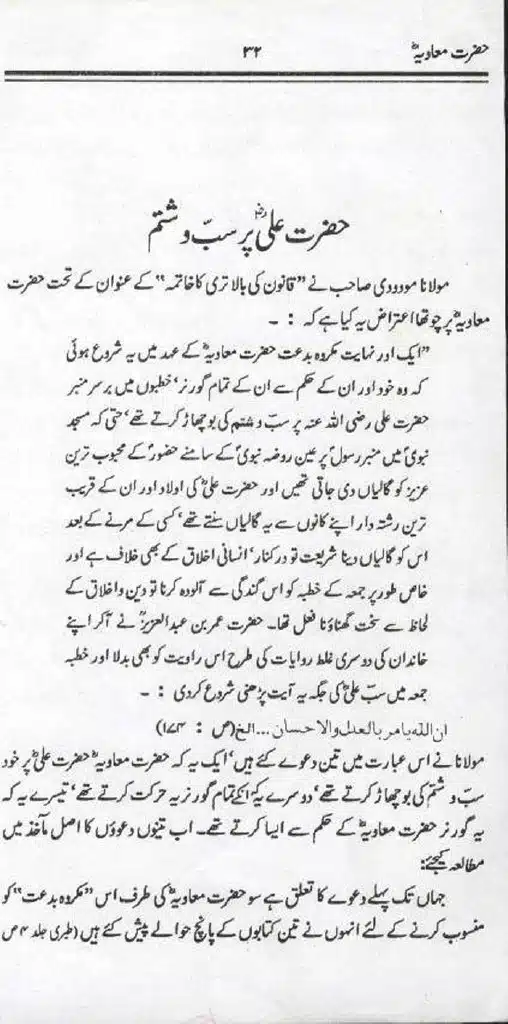 حضرت معاویہؓ ۳۲
حضرت علیؓ پر سبّ و شتم
مولانا مودودی صاحب نے "قانون کی بالا تری کا خاتمہ" کے عنوان کے تحت حضرت
معاویہؓ پر چوتھا اعتراض یہ کیا ہے کہ : ۔
"ایک اور نہایت مکروہ بدعت حضرت معاویہؓ کے عہد میں یہ شروع ہوئی
کہ وہ خود اور ان کے حکم سے ان کے تمام گورنر' خطبوں میں برسر منبر
حضرت علی رضی اللہ عنہ پر سبّ و شتم کی بوچھاڑ کرتے تھے' حتی کہ مسجد
نبویؐ میں منبر رسولؐ پر عین روضہ نبویؐ کے سامنے حضورؐ کے محبوب ترین
عزیز کو گالیاں دی جاتی تھیں اور حضرت علیؓ کی اولاد اور ان کے قریب
ترین رشتہ دار اپنے کانوں سے یہ گالیاں سنتے تھے' کسی کے مرنے کے بعد
اس کو گالیاں دینا شریعت تو درکنار' انسانی اخلاق کے بھی خلاف ہے اور
خاص طور پر جمعہ کے خطبہ کو اس گندگی سے آلودہ کرنا تو دین و اخلاق کے
لحاظ سے سخت گھناؤنا فعل تھا۔ حضرت عمر بن عبدالعزیزؒ نے آکر اپنے
خاندان کی دوسری غلط روایات کی طرح اس راویت کو بھی بدلا اور خطبہ
جمعہ میں سبّ علیؓ کی جگہ یہ آیت پڑھنی شروع کردی : ۔
ان اللہ یامر بالعدل والاحسان ... الخ (ص : ۱۷۴)
مولانا نے اس عبارت میں تین دعوے کئے ہیں' ایک یہ کہ حضرت معاویہؓ حضرت علیؓ پر خود
سبّ و شتم کی بوچھاڑ کرتے تھے' دوسرے یہ کہ انکے تمام گورنر یہ حرکت کرتے تھے' تیسرے یہ کہ
یہ گورنر حضرت معاویہؓ کے حکم سے ایسا کرتے تھے۔ اب تینوں دعوؤں کا اصل مآخذ میں
مطالعہ کیجئے:
جہاں تک پہلے دعوے کا تعلق ہے سو حضرت معاویہؓ کی طرف اس "مکروہ بدعت" کو
منسوب کرنے کے لئے انہوں نے تین کتابوں کے پانچ حوالے پیش کئے ہیں (طبری جلد ۴ ص